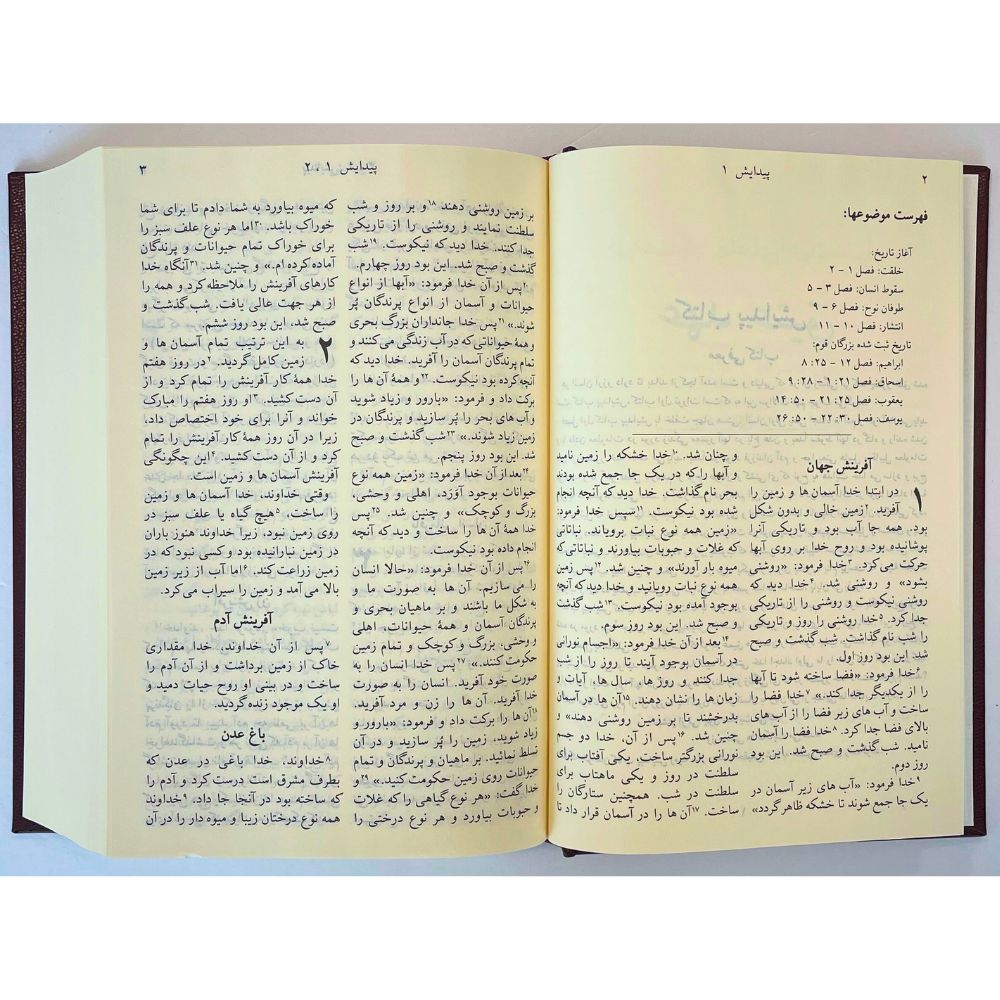 ۲
پیدایش ۱
فهرست موضوعها:
آغاز تاریخ:
خلقت: فصل ۱ – ۲
سقوط انسان: فصل ۳ – ۵
طوفان نوح: فصل ۶ – ۹
انتشار: فصل ۱۰ – ۱۱
تاریخ ثبت شده بزرگان قوم:
ابراهیم: فصل ۱۲ – ۲۵: ۸
اسحاق: فصل ۲۱: ۱ – ۲۸: ۹
یعقوب: فصل ۲۵: ۲۱ – ۵۰: ۱۴
یوسف: فصل ۳۰: ۲۲ – ۵۰: ۲۶
آفرینش جهان
۱ در ابتدا خدا آسمان ها و زمین را
آفرید. ۲زمین خالی و بدون شکل
بود. همه جا آب بود و تاریکی آنرا
پوشانیده بود و روح خدا بر روی آبها
حرکت می‌کرد. ۳خدا فرمود: «روشنی
بشود» و روشنی شد. ۴خدا دید که
روشنی نیکوست و روشنی را از تاریکی
جدا کرد. ۵خدا روشنی را روز و تاریکی
را شب نام گذاشت. شب گذشت و صبح
شد. این بود روز اول.
۶خدا فرمود: «فضا ساخته شود تا آبها
را از یکدیگر جدا کند.» ۷خدا فضا را
ساخت و آب های زیر فضا را از آب های
بالای فضا جدا کرد. ۸خدا فضا را آسمان
نامید. شب گذشت و صبح شد. این بود
روز دوم.
۹خدا فرمود: «آب های زیر آسمان در
یک جا جمع شوند تا خشکه ظاهر گردد»
و چنان شد. ۱۰خدا خشکه را زمین نامید
و آبها را که در یک جا جمع شده بودند
بحر نام گذاشت. خدا دید که آنچه انجام
شده بود نیکوست. ۱۱سپس خدا فرمود:
«زمین همه نوع نبات برویاند. نباتاتی
که غلات و حبوبات بیاورند و نباتاتی که
میوه بار آورند» و چنین شد. ۱۲پس زمین
همه نوع نبات رویانید و خدا دید که آنچه
بوجود آمده بود نیکوست. ۱۳شب گذشت
و صبح شد. این بود روز سوم.
۱۴بعد از آن خدا فرمود: «اجسام نورانی
در آسمان بوجود آیند تا روز را از شب
جدا کنند و روز ها، سال ها، آیات و
زمان ها را نشان دهند. ۱۵آن ها در آسمان
بدرخشند تا بر زمین روشنی دهند» و
چنین شد. ۱۶پس از آن، خدا دو جسم
نورانی بزرگتر ساخت، یکی آفتاب برای
سلطنت در روز و یکی ماهتاب برای
سلطنت در شب. همچنین ستارگان را
ساخت. ۱۷آن ها را در آسمان قرار داد تا
پیدایش ۱ ، ۲
۳
بر زمین روشنی دهند ۱۸و بر روز و شب
سلطنت نمایند و روشنی را از تاریکی
جدا کنند. خدا دید که نیکوست. ۱۹شب
گذشت و صبح شد. این بود روز چهارم.
۲۰پس از آن خدا فرمود: «آبها از انواع
حیوانات و آسمان از انواع پرندگان پُر
شوند.» ۲۱پس خدا جانداران بزرگ بحری
و همهٔ حیواناتی که در آب زندگی می‌کنند و
تمام پرندگان آسمان را آفرید. خدا دید که
آنچه کرده بود نیکوست. ۲۲و همهٔ آن ها را
برکت داد و فرمود: «بارور و زیاد شوید
و آب های بحر را پُر سازید و پرندگان در
زمین زیاد شوند.» ۲۳شب گذشت و صبح
شد. این بود روز پنجم.
۲۴بعد از آن خدا فرمود: «زمین همه نوع
حیوانات بوجود آوَرَد، اهلی و وحشی،
بزرگ و کوچک» و چنین شد. ۲۵پس
خدا همهٔ آن ها را ساخت و دید که آنچه
انجام داده بود نیکوست.
۲۶پس از آن خدا فرمود: «حالا انسان
را می سازیم. آن ها به صورت ما و
به شکل ما باشند و بر ماهیان بحری و
پرندگان آسمان و همهٔ حیوانات، اهلی
و وحشی، بزرگ و کوچک و تمام زمین
حکومت کنند.» ۲۷پس خدا انسان را به
صورت خود آفرید. انسان را به صورت
خدا آفرید. آن ها را زن و مرد آفرید.
۲۸آن ها را برکت داد و فرمود: «بارور و
زیاد شوید. زمین را پُر سازید و در آن
تسلط نمائید. بر ماهیان و پرندگان و تمام
حیوانات روی زمین حکومت کنید.» ۲۹و
خدا گفت: «هر نوع گیاهی را که غلات
و حبوبات بیاورد و هر نوع درختی را
که میوه بیاورد به شما دادم تا برای شما
خوراک باشد. ۳۰اما هر نوع علف سبز را
برای خوراک تمام حیوانات و پرندگان
آماده کرده ام.» و چنین شد. ۳۱آنگاه خدا
کارهای آفرینش را ملاحظه کرد و همه را
از هر جهت عالی یافت. شب گذشت و
صبح شد، این بود روز ششم.
۲ به این ترتیب تمام آسمان ها و
زمین کامل گردید. ۲در روز هفتم
خدا همهٔ کار آفرینش را تمام کرد و از
آن دست کشید. ۳او روز هفتم را مبارک
خواند و آنرا برای خود اختصاص داد،
زیرا در آن روز همهٔ کار آفرینش را تمام
کرد و از آن دست کشید. ۴این چگونگی
آفرینش آسمان ها و زمین است.
وقتی خداوند، خدا آسمان ها و زمین
را ساخت، ۵هیچ گیاه یا علف سبز در
روی زمین نبود، زیرا خداوند هنوز باران
در زمین نبارانیده بود و کسی نبود که در
زمین زراعت کند. ۶اما آب از زیر زمین
بالا می آمد و زمین را سیراب می‌کرد.
آفرینش آدم
۷پس از آن خداوند، خدا مقداری
خاک از زمین برداشت و از آن آدم را
ساخت و در بینی او روح حیات دمید و
او یک موجود زنده گردید.
باغ عدن
۸خداوند، خدا باغی در عدن که
بطرف مشرق است درست کرد و آدم را
که ساخته بود در آنجا جا داد. ۹خداوند
همه نوع درختان زیبا و میوه دار را در آن